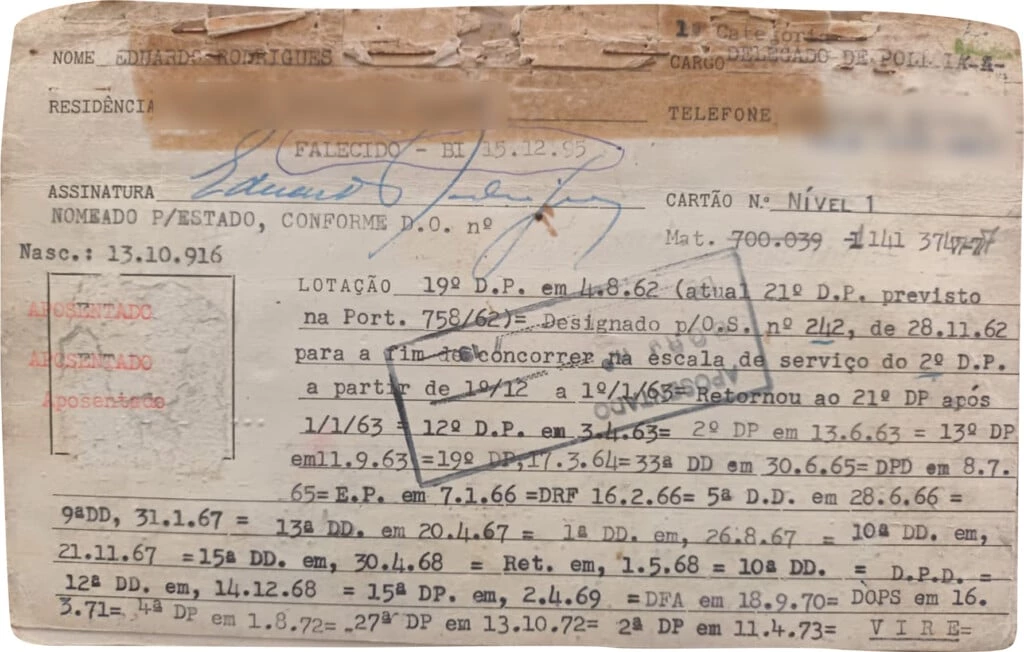 1ª Categoria
NOME EDUARDO RODRIGUES CARGO DELEGADO DE POLICIA-A-
RESIDÊNCIA TELEFONE
FALECIDO - BI 15.12.95
ASSINATURA Eduardo Rodrigues CARTÃO N.º NÍVEL 1
NOMEADO P/ESTADO, CONFORME D.O. nº
Mat. 700.039 141 374
Nasc.: 13.10.916
LOTAÇÃO 19º D.P. em 4.8.62 (atual 21º D.P. previsto
APOSENTADO na Port. 758/62)= Designado p/O.S. nº 242, de 28.11.62
APOSENTADO para a fim de concorrer na escala de serviço do 2º D.P.
Aposentado a partir de 1º/12 a 1º/1/63= Retornou ao 21º DP após
APOSENTADO
1/1/63 = 12º D.P. em 3.4.63= 2º DP em 13.6.63 = 13º DP
em11.9.63 =19º DP,17.3.64=33ª DD em 30.6.65=DPD em 8.7.
65= E.P. em 7.1.66 =DRF 16.2.66= 5ª D.D. em 28.6.66 =
9ªDD, 31.1.67 = 13ª DD. em 20.4.67 = 1ª DD em, 26.8.67 = 10ª DD. em,
21.11.67 =15ª DD. em, 30.4.68 = Ret. em, 1.5.68 = 10ª DD. = D.P.D. =
12ª DD. em, 14.12.68 = 15ª DP. em, 2.4.69 =DFA em 18.9.70= DOPS em 16.
3.71= 4ª DP em 1.8.72= 27ª DP em 13.10.72= 2ª DP em 11.4.73= V I R E=